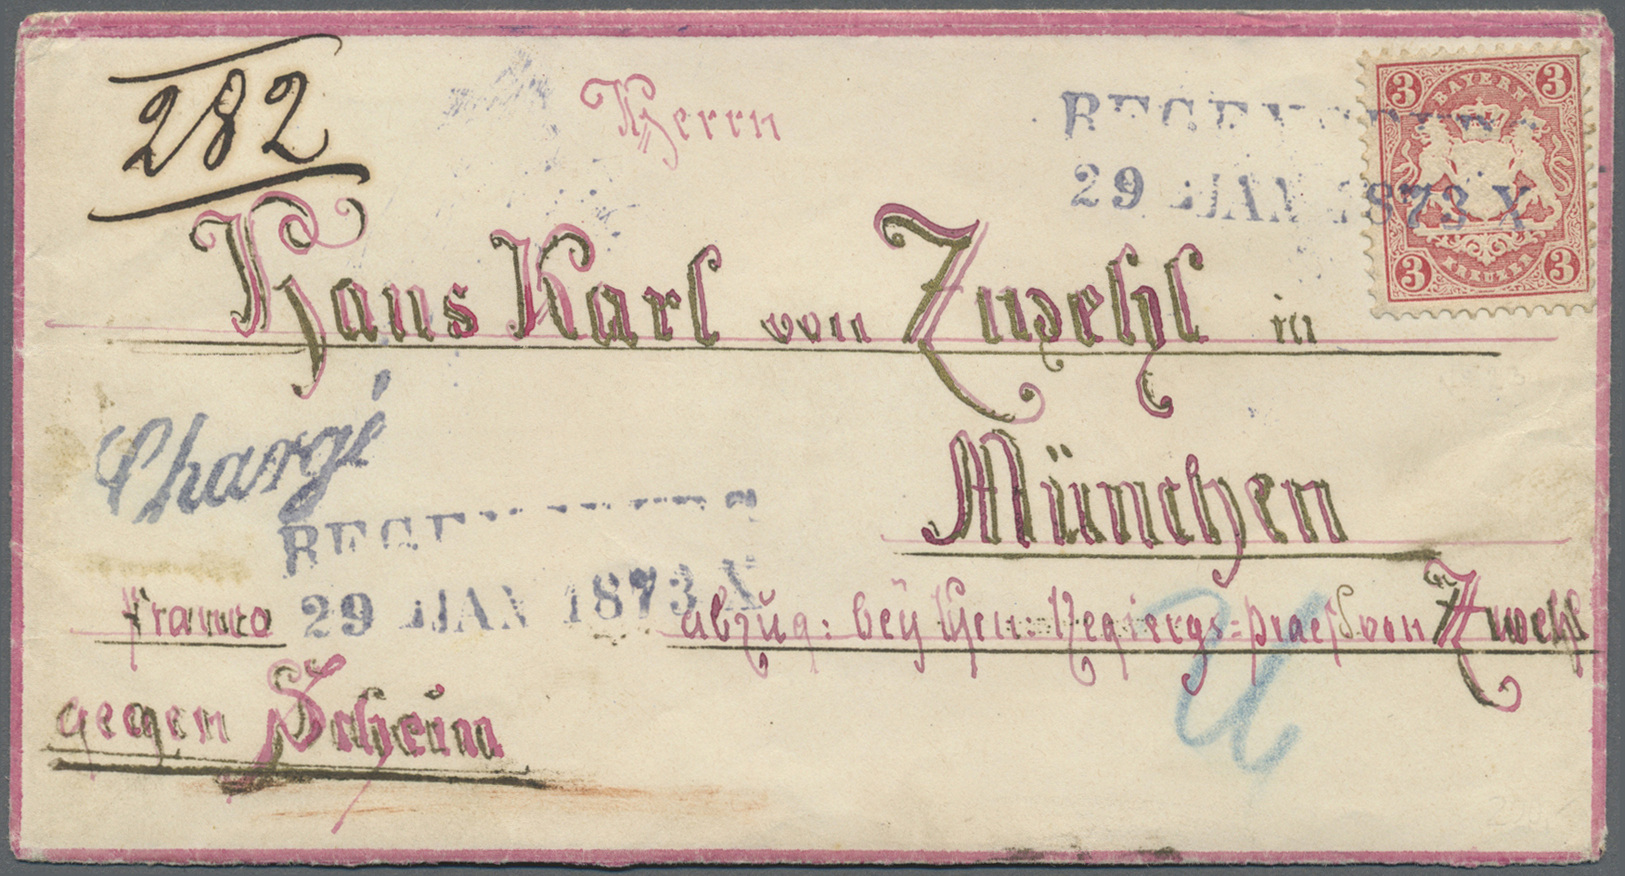 282
Herrn
REGENSBURG
29 JAN 1873 X
3 BAYERN 3
3 KREUZER 3
Hans Karl von Zwehl in
Chargé
München
REGENSBURG
29 JAN 1873 X
franco
abzug: bey Hrn: Regiergs=praes von Zwehl
gegen Schein